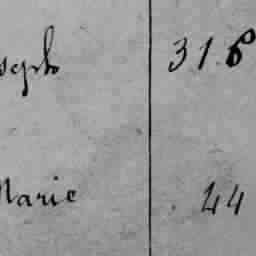 seph 316
Marie 44